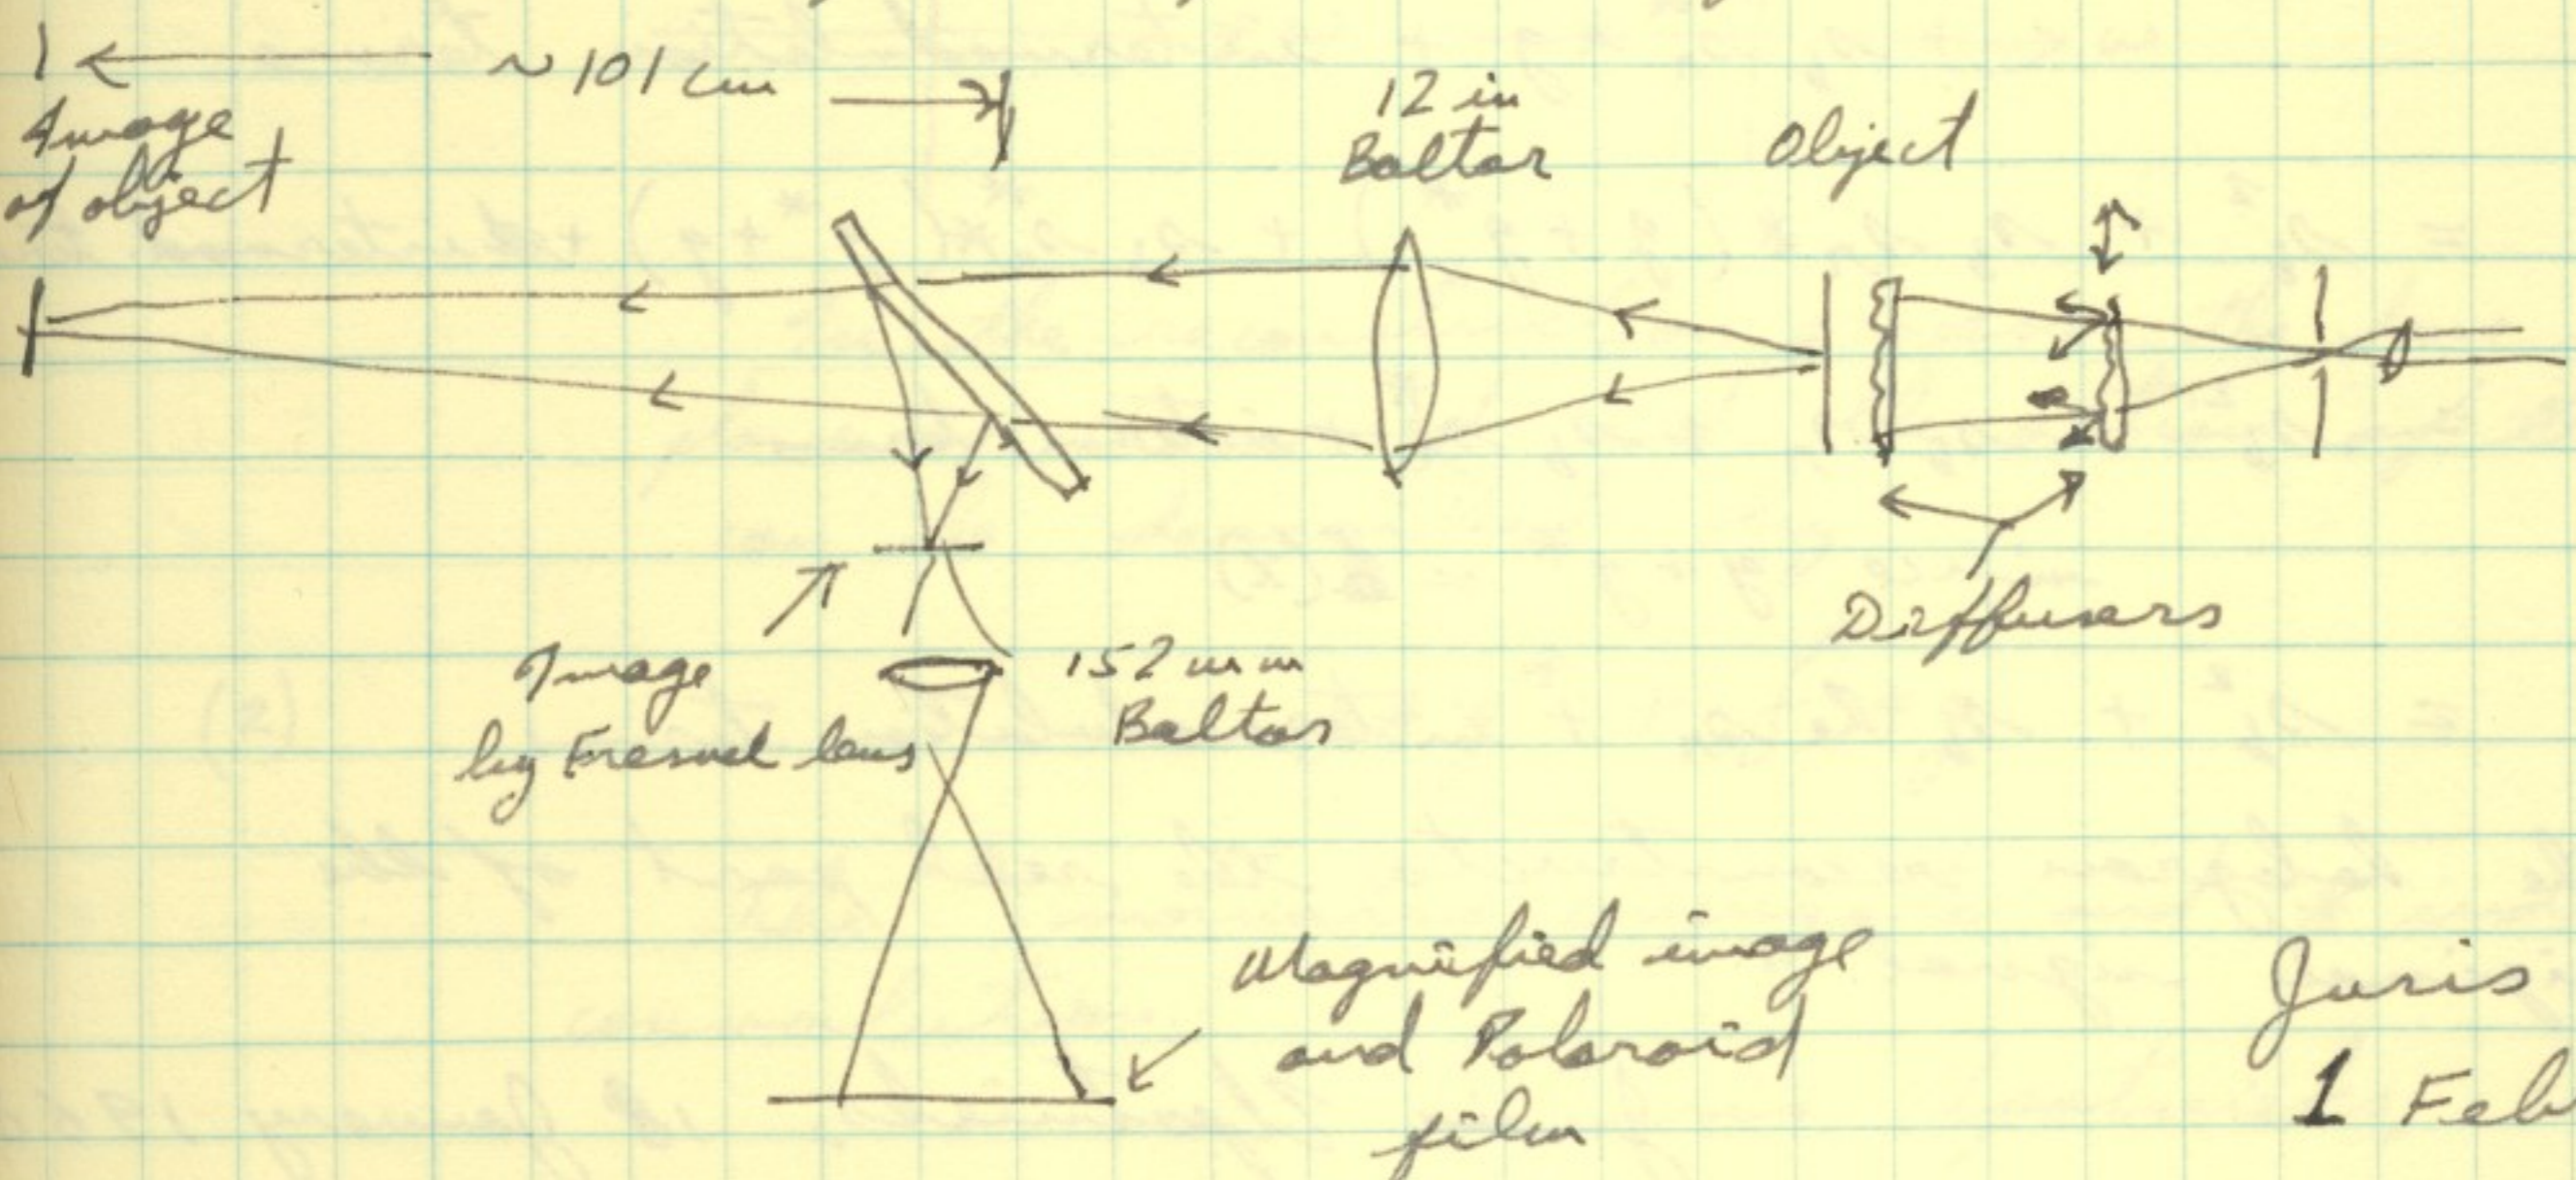 ~ 101 cm
Image
of object
12 in
Baltar
Object
Diffusers
Image
by Fresnel lens
152 mm
Baltar
Magnified image
and Polaroid
film
Juris
1 Feb